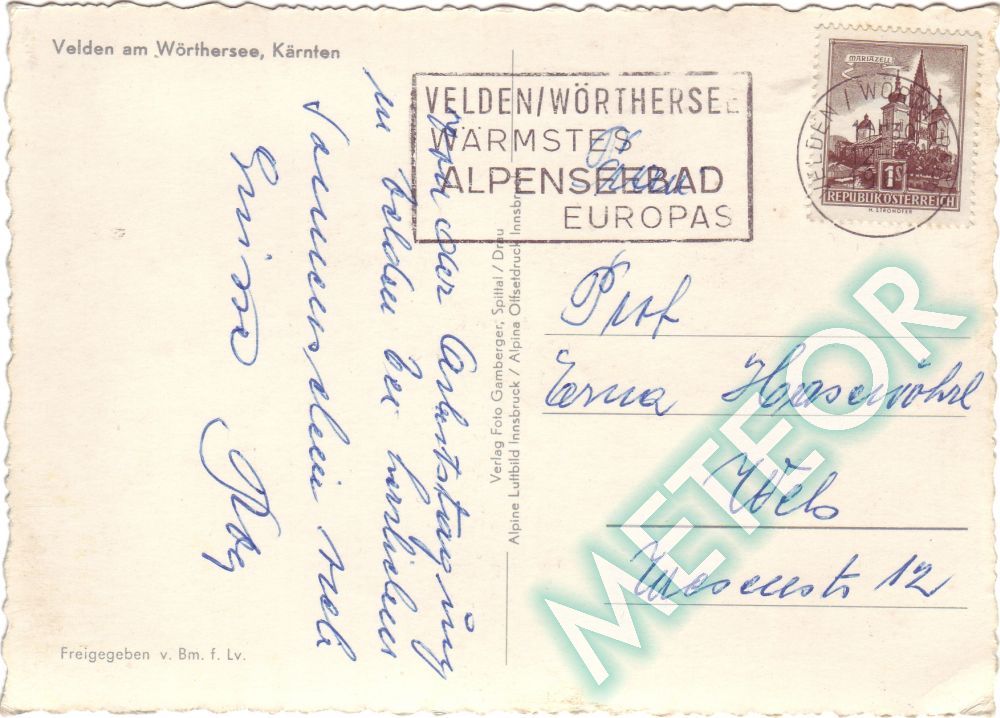 Velden am Wörthersee, Kärnten
VELDEN/WÖRTHERSEE
WÄRMSTES
ALPENSEEBAD
EUROPAS
MARIAZELL
1S
REPUBLIK ÖSTERREICH
VELDEN
Von der Arbeitstagung
in Velden bei herrlichem
Sonnenschein
Verlag Foto Gamberger, Spittal / Drau
Alpine Luftbild Innsbruck / Alpina Offsetdruck Innsbruck
Frau
Prof
Erna
Wels
12
Freigegeben v. Bm. f. Lv.
METEOR